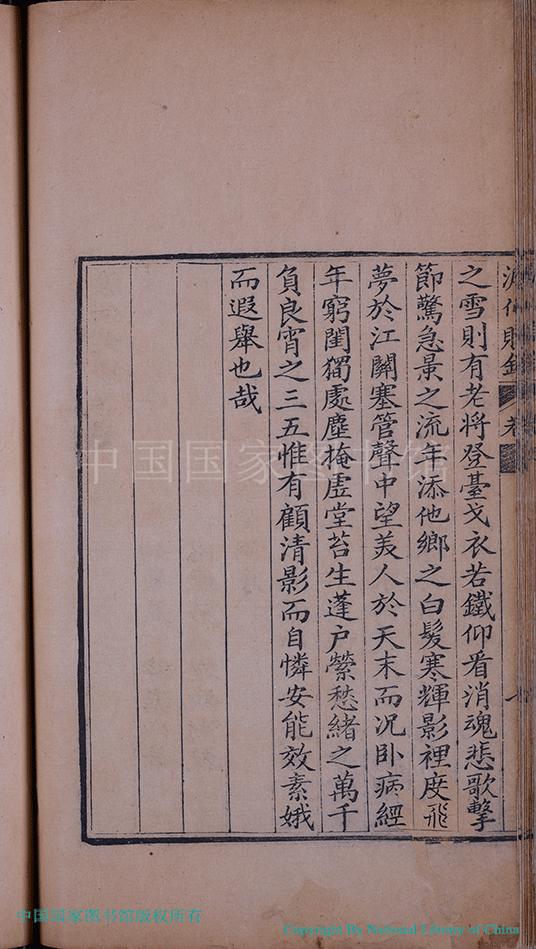 之雪則有老將登臺戈衣若鐵仰看消魂悲歌擊
節驚急景之流年添他鄉之白髮寒輝影裡度飛
夢於江關塞管聲中望美人於天末而况卧病經
年窮閨獨處塵掩虛堂苔生蓬户縈愁緒之萬千
負良宵之三五惟有顧清影而自憐安能效素娥
而遐舉也哉
中国国家图书馆
中国国家图书馆版权所有
Copyright By National Library of China